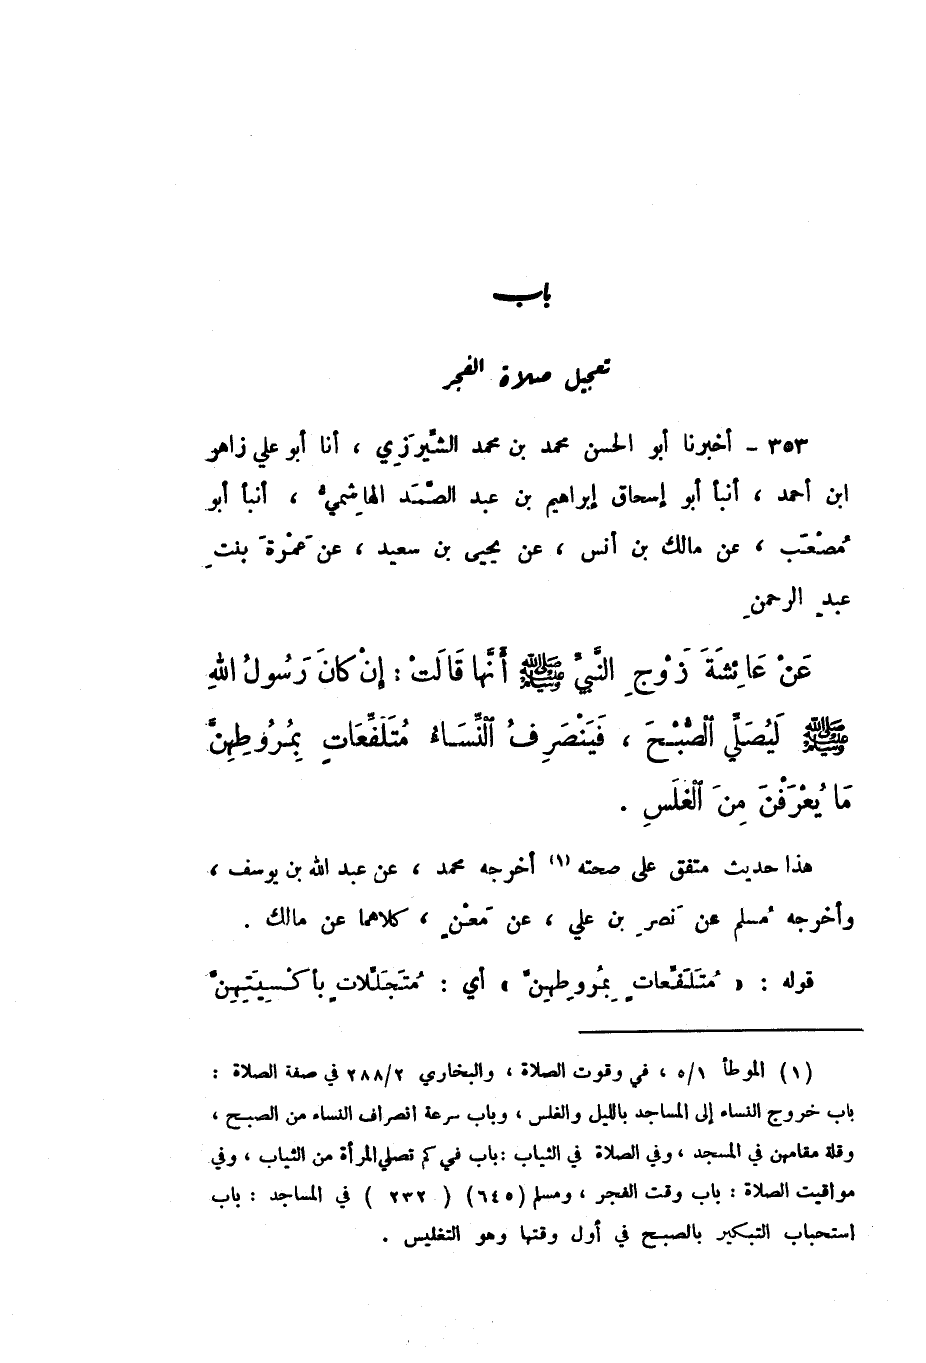 باب
تعجيل صلاة الفجر
٣٥٣ - أخبرنا أبو الحسن محمد بن محمد الشِّيرَزِي ، أنا أبو علي زاهر
ابن أحمد ، أنبأ أبو إسحاق إبراهيم بن عبد الصَّمَد الهاشميُّ ، أنبأ أبو
مُصْعَب ، عن مالك بن أنس ، عن يحيى بن سعيد ، عن عَمْرَةَ بنتِ
عبدِ الرحمنِ
عَنْ عَائِشَةَ زَوْجِ النَّبِيِّ ﷺ أَنَّهَا قَالَتْ : إِنْ كَانَ رَسُولُ اللهِ
ﷺ لَيُصَلِّي ٱلصُّبْحَ ، فَيَنْصَرِفُ ٱلنِّسَاءُ مُتَلَفِّعَاتٍ بِمُرُوطِهِنَّ
مَا يُعْرَفْنَ مِنَ ٱلْغَلَسِ .
هذا حديث متفق على صحته (١) أخرجه محمد ، عن عبد الله بن يوسف ،
وأخرجه مُسلم عن نَصرِ بن علي ، عن مَعْنٍ ، كلاهما عن مالك .
قوله : « مُتَلَفِّعاتٍ بِمُروطِهِنَّ » أي : مُتَجَلِّلات بأكْسِيَتِهِنَّ
(١) الموطأ ٥/١ ، في وقوت الصلاة ، والبخاري ٢٨٨/٢ في صفة الصلاة :
باب خروج النساء إلى المساجد بالليل والغلس ، وباب سرعة انصراف النساء من الصبح ،
وقلة مقامهن في المسجد ، وفي الصلاة في الثياب : باب في كم تصلي المرأة من الثياب ، وفي
مواقيت الصلاة : باب وقت الفجر ، ومسلم (٦٤٥) ( ٢٣٢ ) في المساجد : باب
استحباب التبكير بالصبح في أول وقتها وهو التغليس .